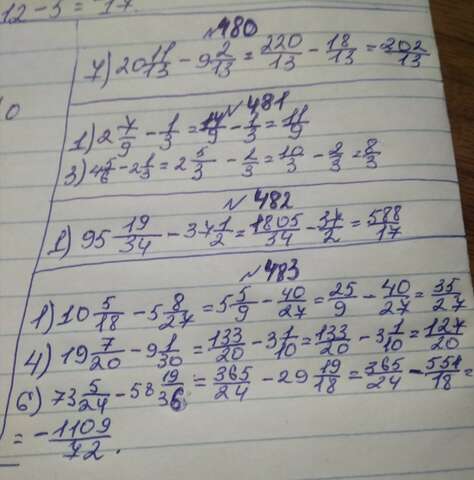 12-5=17.
№480
7) 20 11/13 - 9 2/13 = 220/13 - 18/13 = 202/13
№481
1) 2 7/9 - 1/3 = 14/9 - 1/3 = 11/9
3) 4 5/6 - 2 1/3 = 2 5/3 - 2/3 = 10/3 - 2/3 = 8/3
№482
1) 95 19/34 - 37 1/2 = 1805/34 - 37/2 = 588/17
№483
1) 10 5/18 - 5 8/27 = 5 5/9 - 40/27 = 25/9 - 40/27 = 35/27
4) 19 7/20 - 9 1/30 = 133/20 - 3 1/10 = 133/20 - 3 1/10 = 127/20
6) 73 5/24 - 58 19/36 = 365/24 - 29 19/18 = 365/24 - 551/18 =
= -1109/72.